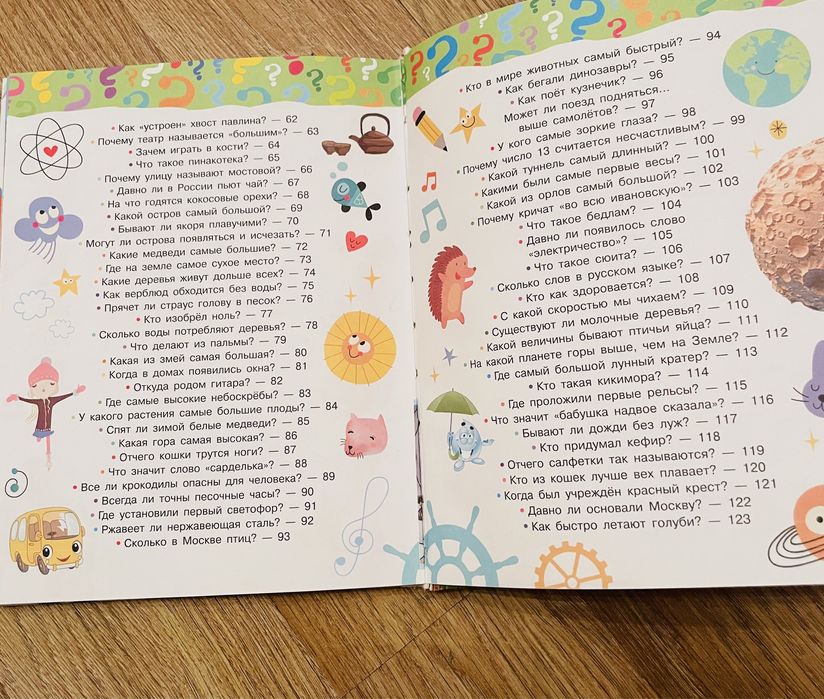 • Как «устроен» хвост павлина? — 62
• Почему театр называется «большим»? — 63
• Зачем играть в кости? — 64
• Что такое пинакотека? — 65
• Почему улицу называют мостовой? — 66
• Давно ли в России пьют чай? — 67
• На что годятся кокосовые орехи? — 68
• Какой остров самый большой? — 69
• Бывают ли якоря плавучими? — 70
Могут ли острова появляться и исчезать? — 71
• Какие медведи самые большие? — 72
• Где на земле самое сухое место? — 73
• Какие деревья живут дольше всех? — 74
• Как верблюд обходится без воды? — 75
• Прячет ли страус голову в песок? — 76
• Кто изобрёл ноль? — 77
Сколько воды потребляют деревья? — 78
• Что делают из пальмы? — 79
• Какая из змей самая большая? — 80
• Когда в домах появились окна? — 81
• Откуда родом гитара? — 82
• Где самые высокие небоскрёбы? — 83
• У какого растения самые большие плоды? — 84
• Спят ли зимой белые медведи? — 85
• Какая гора самая высокая? — 86
• Отчего кошки трутся ноги? — 87
• Что значит слово «сарделька»? — 88
• Все ли крокодилы опасны для человека? — 89
• Всегда ли точны песочные часы? — 90
• Где установили первый светофор? — 91
• Ржавеет ли нержавеющая сталь? — 92
• Сколько в Москве птиц? — 93
• Кто в мире животных самый быстрый? — 94
• Как бегали динозавры? — 95
• Как поёт кузнечик? — 96
Может ли поезд подняться...
выше самолётов? — 97
• У кого самые зоркие глаза? — 98
• Почему число 13 считается несчастливым? — 99
• Какой туннель самый длинный? — 100
• Какими были самые первые весы? — 101
• Какой из орлов самый большой? — 102
• Почему кричат «во всю ивановскую»? — 103
• Что такое бедлам? — 104
• Давно ли появилось слово
«электричество»? — 105
• Что такое сюита? — 106
• Сколько слов в русском языке? — 107
• Кто как здоровается? — 108
• С какой скоростью мы чихаем? — 109
• Существуют ли молочные деревья? — 110
• Какой величины бывают птичьи яйца? — 111
• На какой планете горы выше, чем на Земле? — 112
• Где самый большой лунный кратер? — 113
• Кто такая кикимора? — 114
• Где проложили первые рельсы? — 115
• Что значит «бабушка надвое сказала»? — 116
• Бывают ли дожди без луж? — 117
• Кто придумал кефир? — 118
• Отчего салфетки так называются? — 119
• Кто из кошек лучше вех плавает? — 120
• Когда был учреждён красный крест? — 121
• Давно ли основали Москву? — 122
• Как быстро летают голуби? — 123